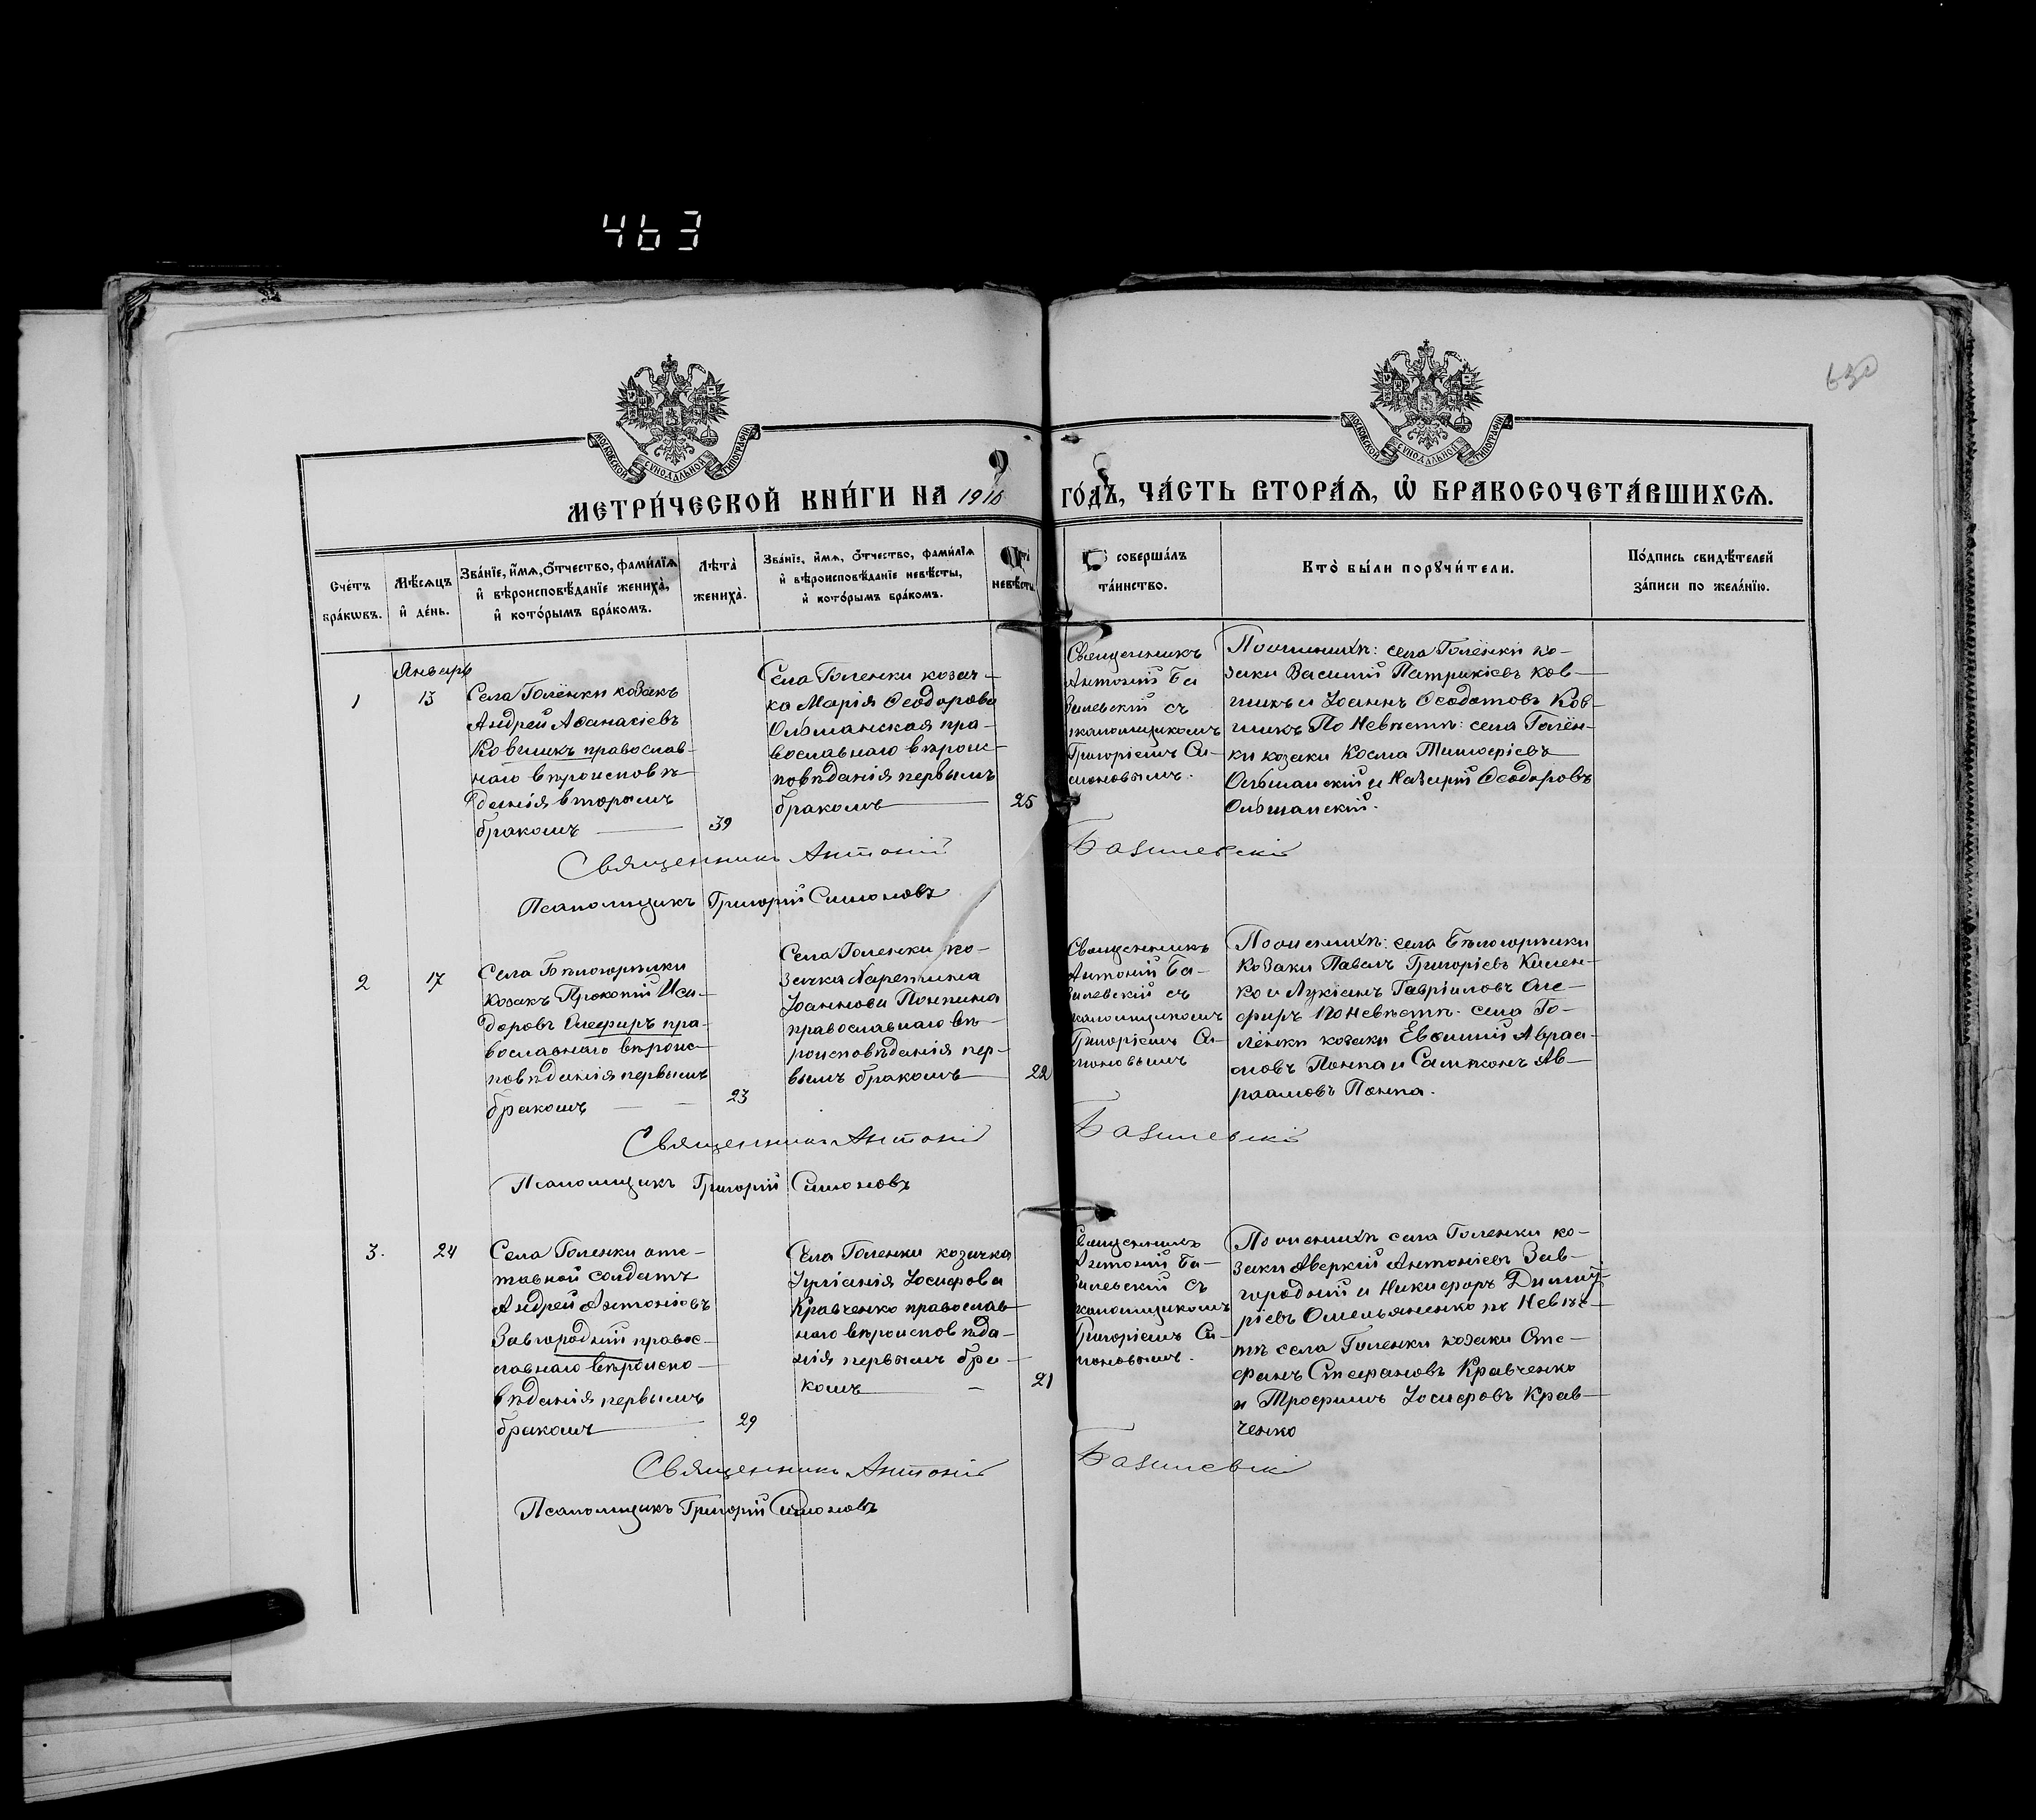 463
630
МОСКОВСКОЙ СУНОДАЛЬНОЙ ТИПОГРАФІИ
МОСКОВСКОЙ СУНОДАЛЬНОЙ ТИПОГРАФІИ
МЕТРИ́ЧЕСКОЙ КНИ́ГИ НА 1916 ГО́ДЪ, ЧА́СТЬ ВТОРА́Ѧ, Ѽ БРАКОСОЧЕТА́ВШИХСѦ.
Сче́тъ
бра́кѡвъ.
Мѣ́сѧцъ
и҆ де́нь.
Зва́нїе, и҆́мѧ, ѻ҆́тчество, фами́лїѧ
и҆ вѣроисповѣ́данїе жениха̀,
и҆ кото́рымъ бра́комъ.
Лѣ́та
жениха̀.
Зва́нїе, и҆́мѧ, ѻ҆́тчество, фами́лїѧ
и҆ вѣроисповѣ́данїе невѣ́сты,
и҆ кото́рымъ бра́комъ.
невѣ́сты
соверша́лъ
та́инство.
Кто̀ бы́ли порꙋчи́тели.
По́дпись свидѣ́телей
за́писи по жела́нїю.
Январь
1
13
Села Голёнки козакъ
Андрей Аѳанасіевъ
Ковшикъ православ-
наго вѣроисповѣ-
данія вторымъ
бракомъ
39
Села Голенки козач-
ка Марія Ѳеодорова
Ольшанская пра-
вославнаго вѣроис-
повѣданія первымъ
бракомъ
25
Священникъ
Антоній Ба
зилевскій съ
псаломщикомъ
Григоріемъ Си-
моновымъ.
По женихѣ: села Голёнки ко-
заки Василій Патрикіевъ Ков-
шикъ и Іоаннъ Ѳеодотовъ Ков-
шикъ По Невѣстѣ: села Голён-
ки козаки Косма Тимоѳіевъ
Ольшанскій и Назарій Ѳеодоровъ
Ольшанскій.
Священникъ Антоній Базилевскій
Псаломщикъ Григорій Симоновъ
2
17
Села Бѣлогорѣлки
козакъ Прокопій Иси-
доровъ Олефиръ пра-
вославнаго вѣроис-
повѣданія первымъ
бракомъ
23
Села Голенки ко-
зачка Харитина
Іоаннова Понпина
православнаго вѣ-
роисповѣданія пер-
вымъ бракомъ
22
Священникъ
Антоній Ба-
зилевскій съ
псаломщикомъ
Григоріемъ Си-
моновымъ
По женихѣ: села Бѣлогорѣлки
козаки Павелъ Григоріевъ Килен-
ко и Лукіанъ Гавріиловъ Оле-
фиръ По невѣстѣ: села Го-
лёнки козаки Евѳимій Авраа-
мовъ Понпа и Сампсонъ Ав-
раамовъ Понпа.
Священникъ Антоній Базилевскій
Псаломщикъ Григорій Симоновъ
3.
24
Села Голенки отс-
тавной солдатъ
Андрей Антоніовъ
Завгородній правос-
лавнаго вѣроиспо-
вѣданія первымъ
бракомъ
29
Села Голенки козачка
Іуліанія Іосифова
Кравченко православ-
наго вѣроисповѣда-
нія первымъ бра-
комъ
21
Священникъ
Антоній Ба-
зилевскій съ
псаломщикомъ
Григоріемъ Си-
моновымъ.
По женихѣ села Голенки ко-
заки Аверкій Антоніевъ Зав-
городній и Никифоръ Димит-
ріевъ Омельяненко по Невѣс-
тѣ села Голенки козаки Сте-
фанъ Стефановъ Кравченко
и Трофимъ Іосифовъ Крав-
ченко
Священникъ Антоній Базилевскій
Псаломщикъ Григорій Симоновъ